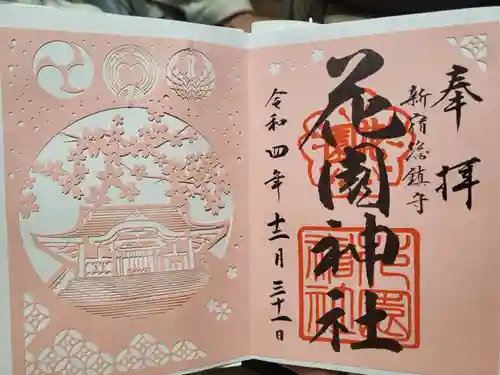 奉拝
新宿総鎮守
花園神社
令和四年十二月三十一日